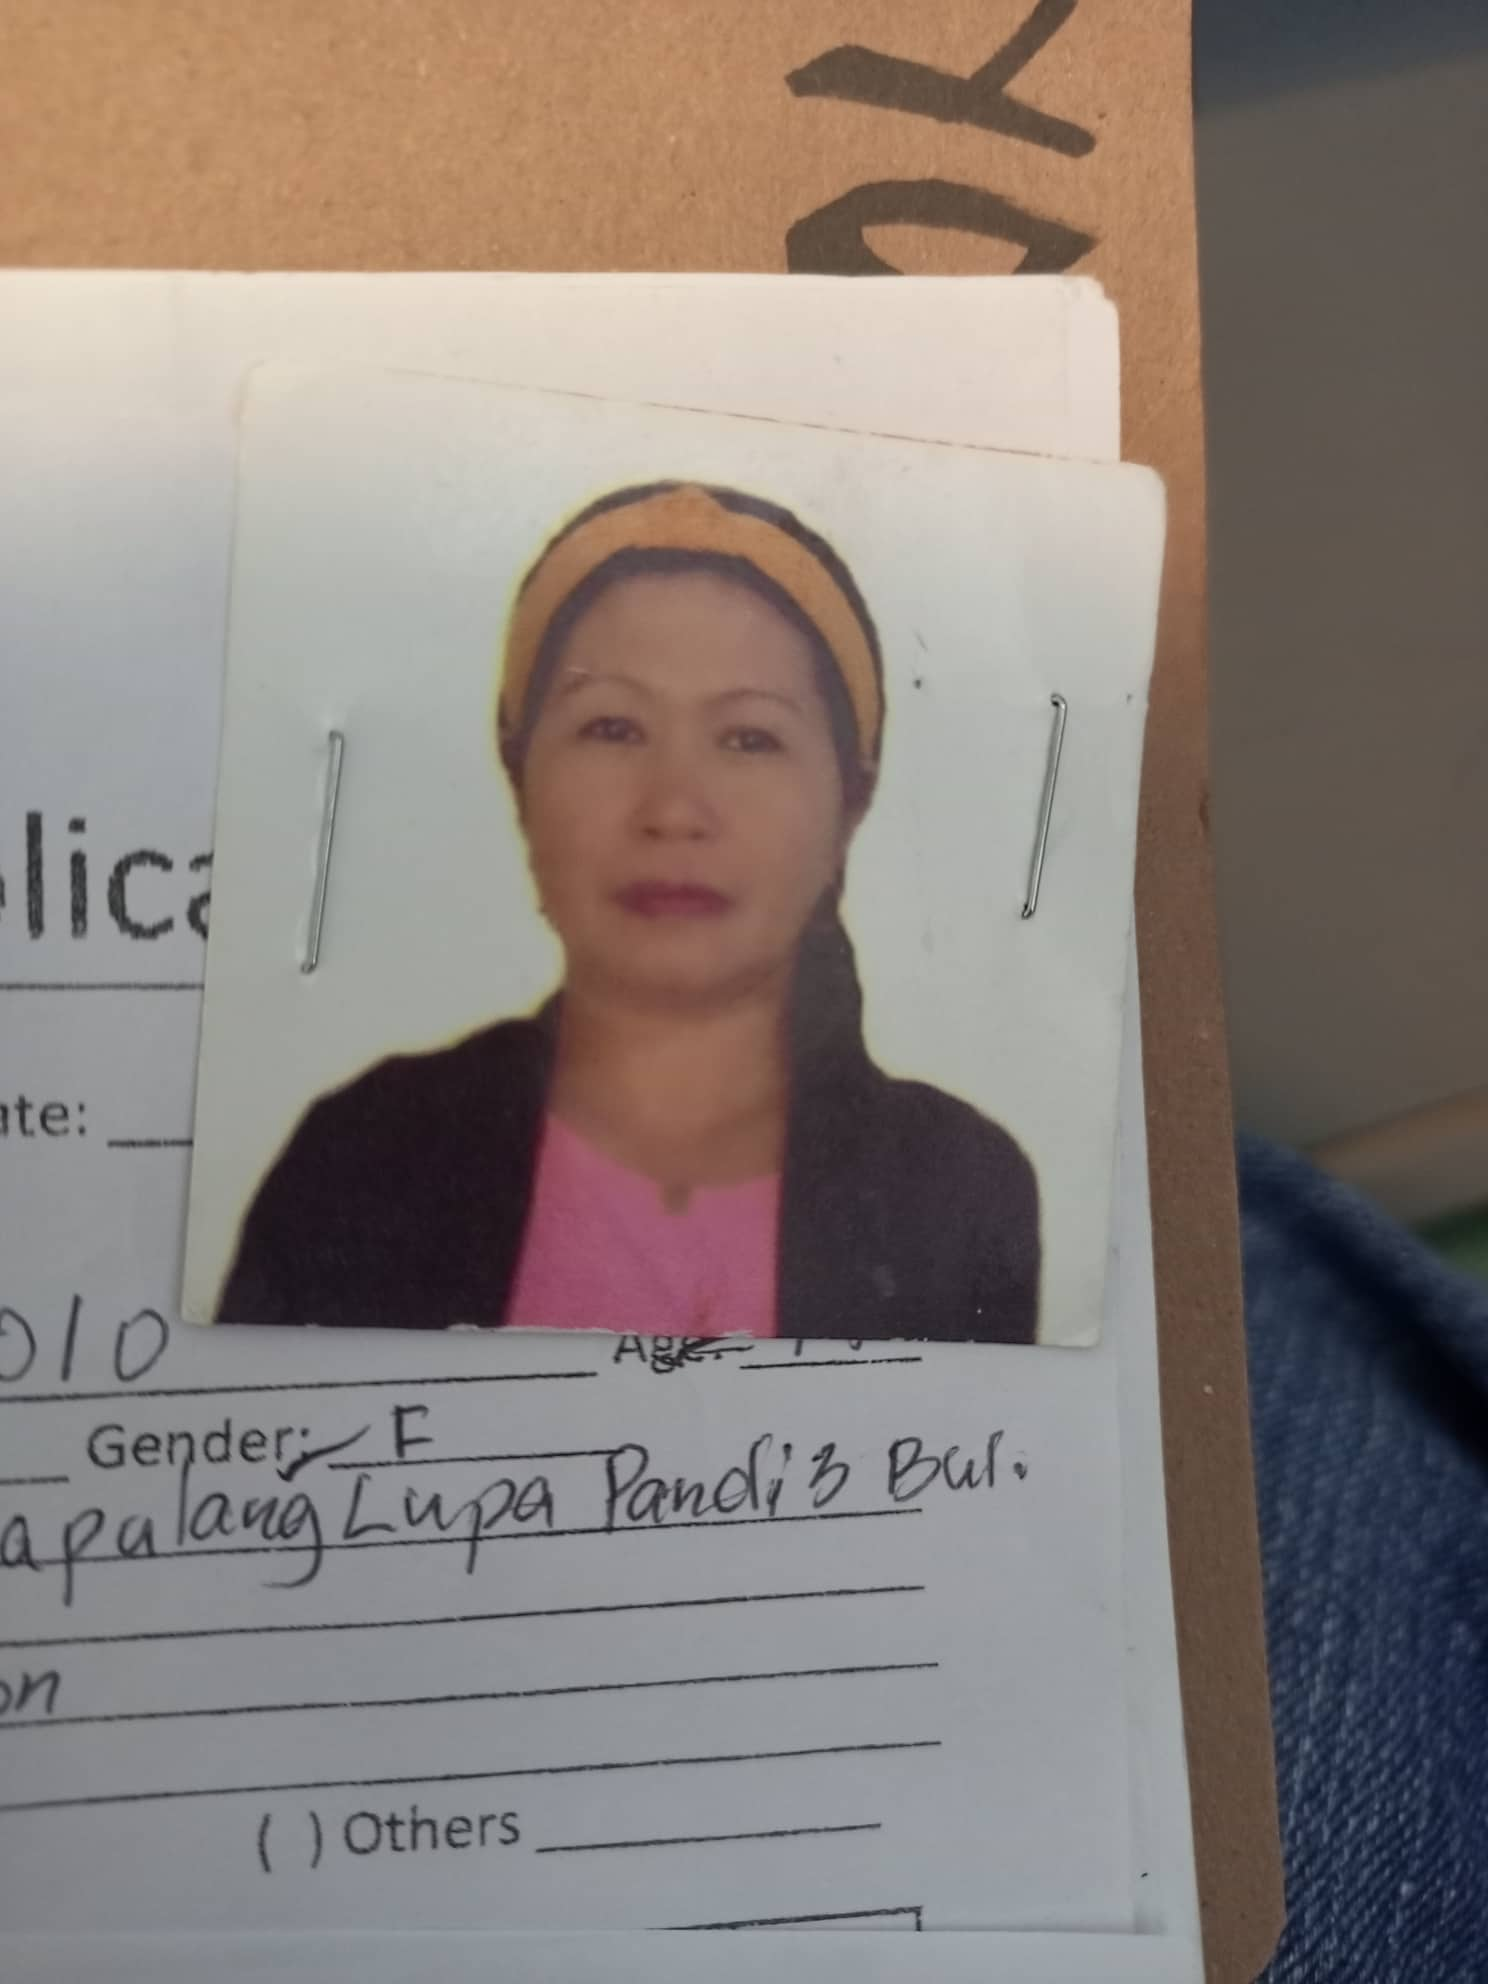 OK
lica
ate:
010
Age:
Gender: F
apulang Lupa Pandi 3 Bul.
on
( ) Others